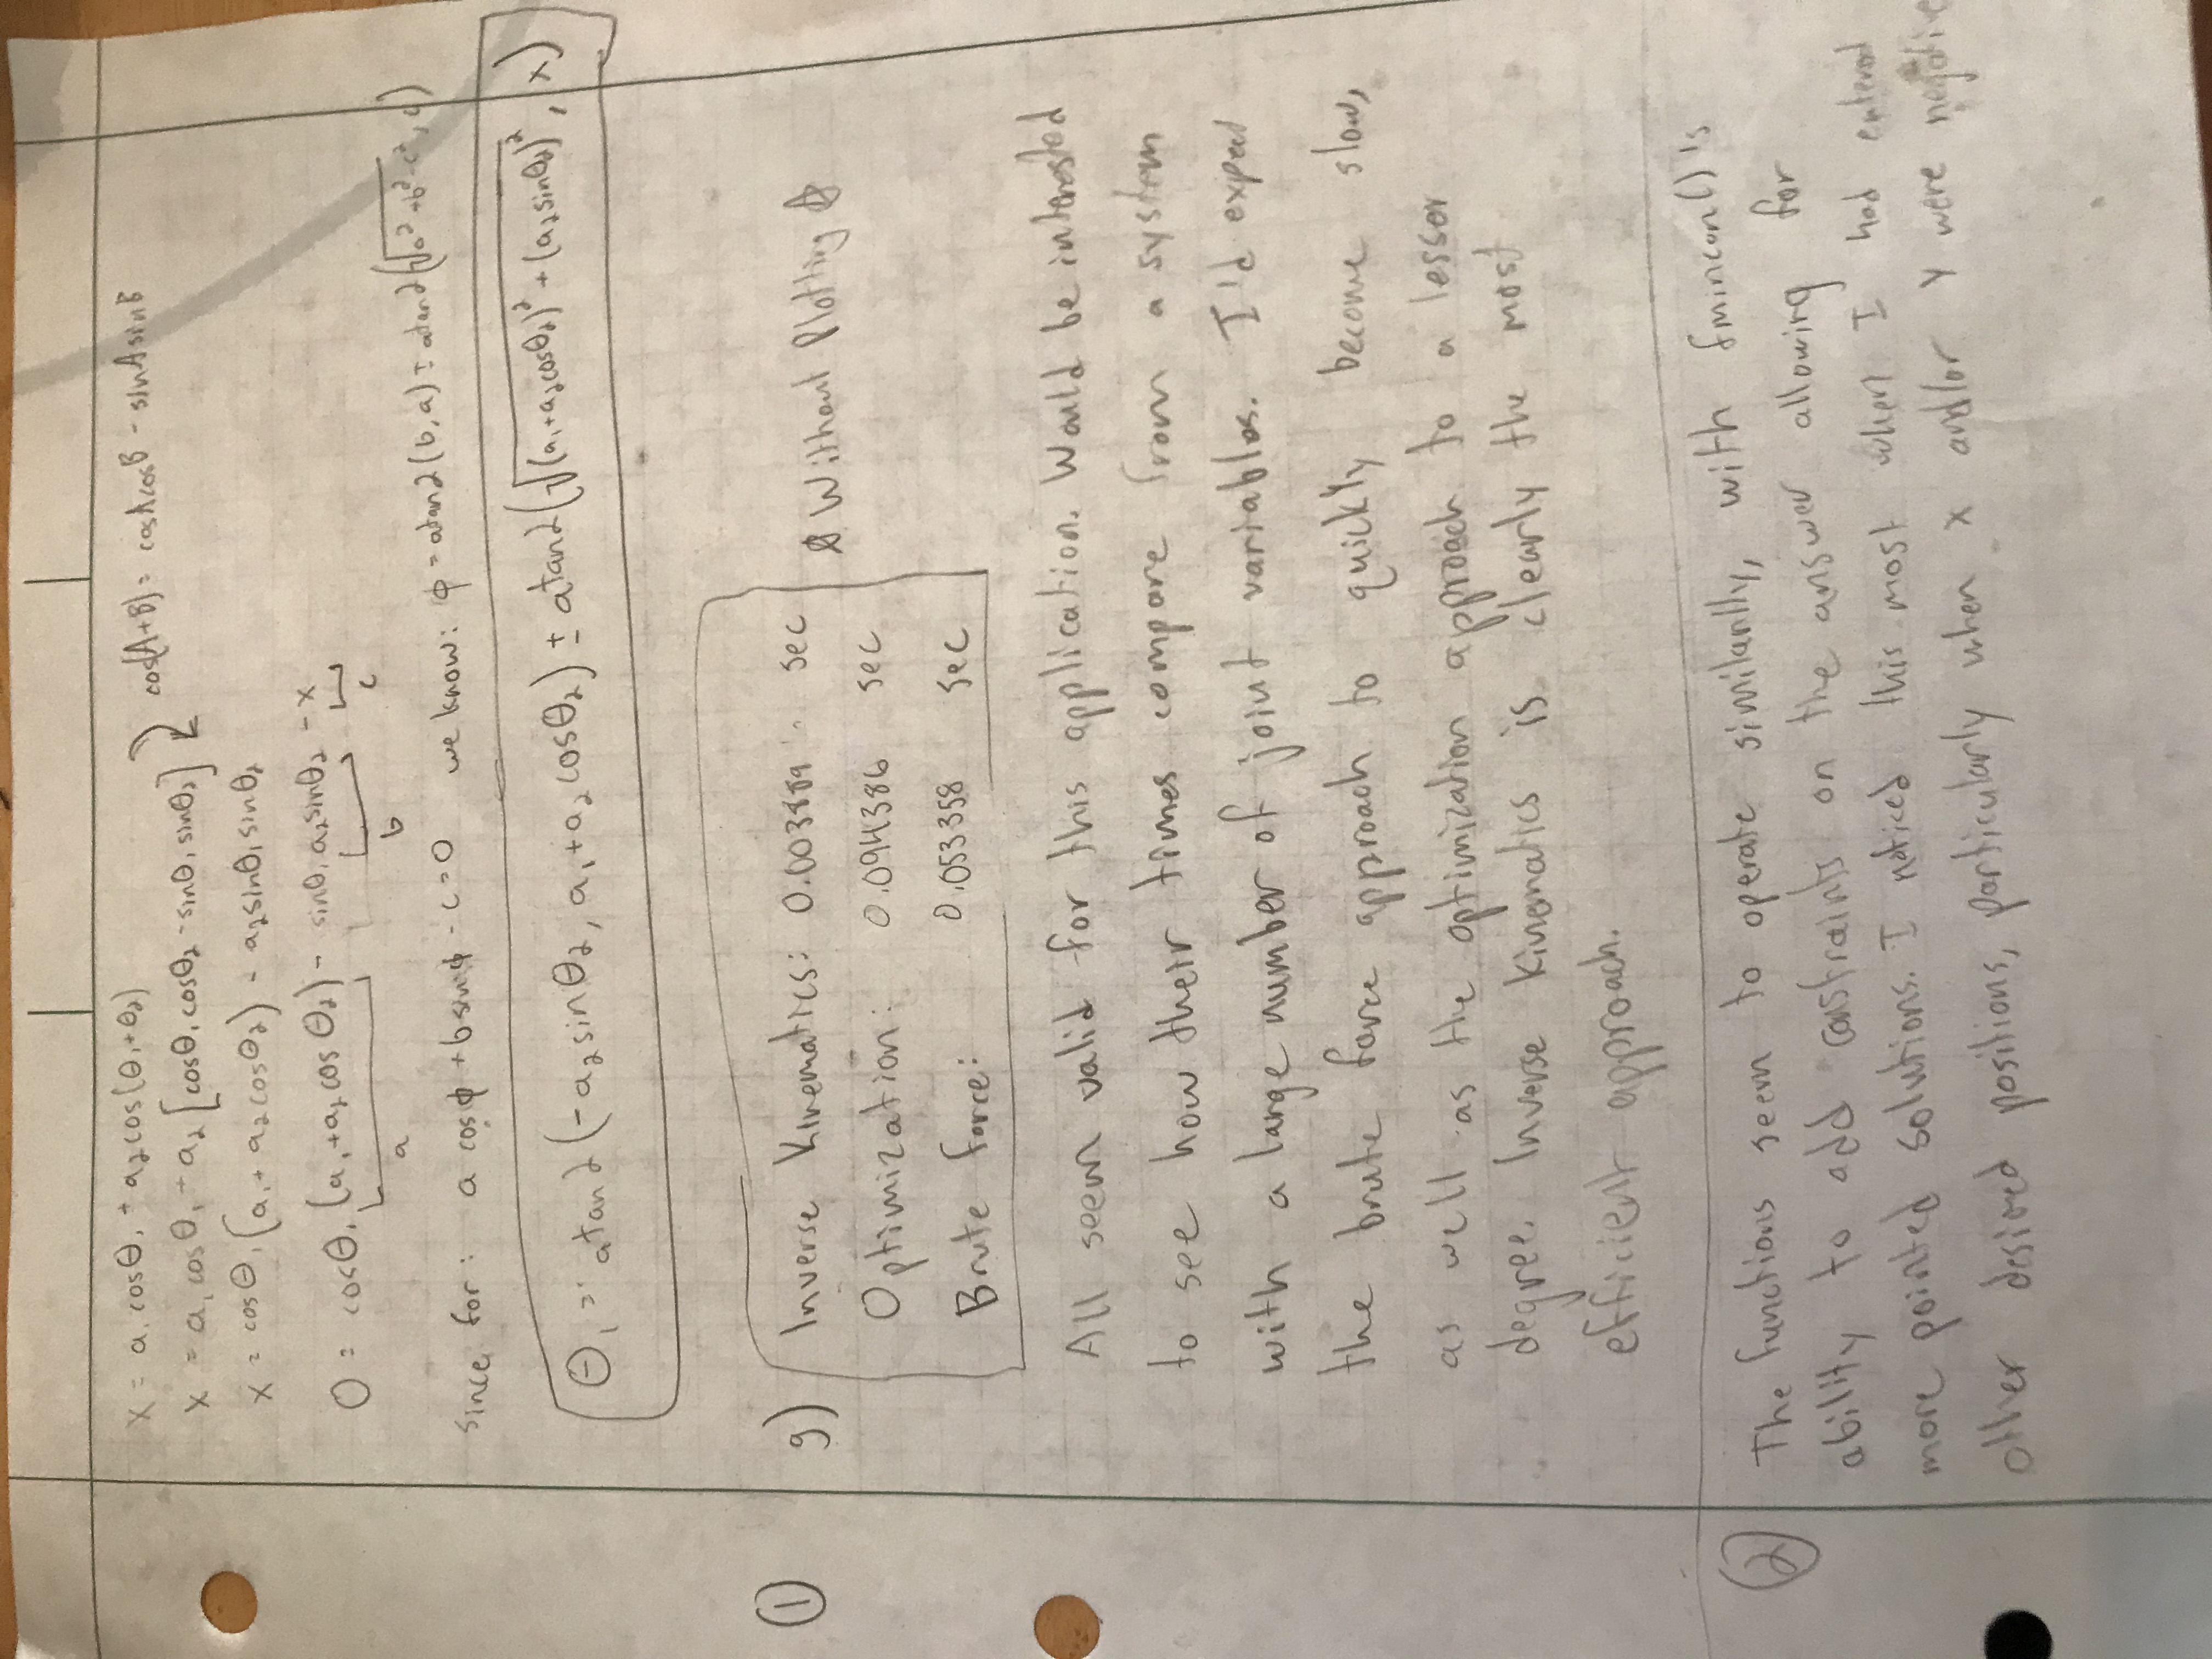 x = a₁ cosθ₁ + a₂cos(θ₁+θ₂)
cos(A+B) = cosAcosB - sinAsinB
x = a₁ cosθ₁ + a₂ [cosθ₁ cosθ₂ - sinθ₁ sinθ₂]
x = cosθ₁ (a₁ + a₂cosθ₂) - a₂sinθ₁ sinθ₂
0 = cosθ₁ (a₁+a₂ cosθ₂) - sinθ₁ a₂sinθ₂ - x
a b c
since for: a cosϕ + b sinϕ - c = 0 we know: ϕ = atan2(b,a) ± atan2(√a² + b² - c², c)
θ₁ = atan2(-a₂sinθ₂, a₁+a₂cosθ₂) ± atan2(√(a₁+a₂cosθ₂)² + (a₂sinθ₂)², x)
① g) Inverse Kinematics: 0.003889 sec
☆ Without Plotting ☆
Optimization: 0.094386 sec
Brute force: 0.053358 sec
All seem valid for this application. Would be interested
to see how their times compare from a system
with a large number of joint variables. I'd expect
the brute force approach to quickly become slow,
as well as the optimization approach to a lesser
degree. Inverse kinematics is clearly the most
efficient approach.
② The functions seem to operate similarlly, with fmincon()'s
ability to add constraints on the answer allowing for
more pointed solutions. I noticed this most when I had entered
other desired positions, particularly when x and/or y were negative